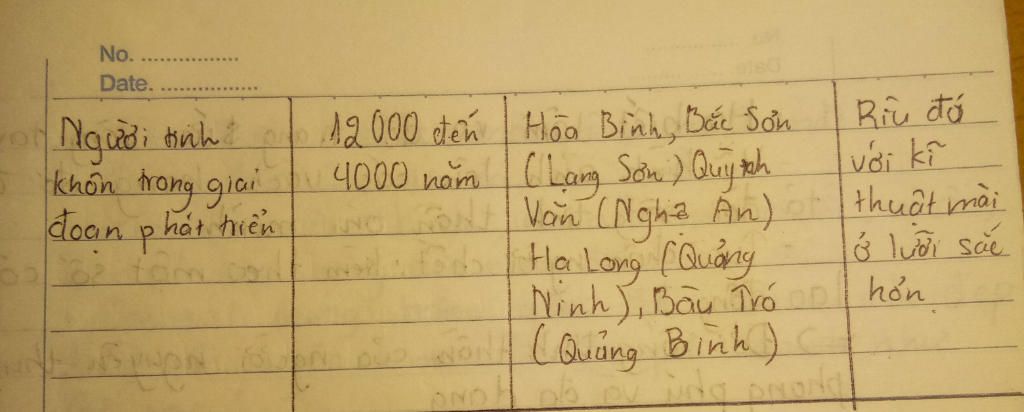 No. ................
Date. ................
Người tinh
khôn trong giai
đoạn phát triển
12000 đến
4000 năm
Hòa Bình, Bắc Sơn
(Lạng Sơn) Quỳnh
Văn (Nghệ An)
Hạ Long (Quảng
Ninh), Bàu Tró
(Quảng Bình)
Rìu đá
với kĩ
thuật mài
ở lưỡi sắc
hơn